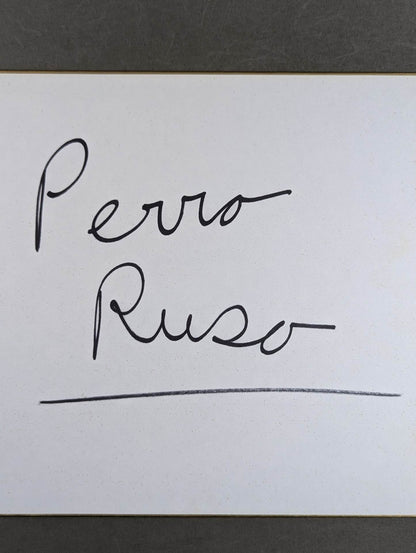 Perro
Ruso